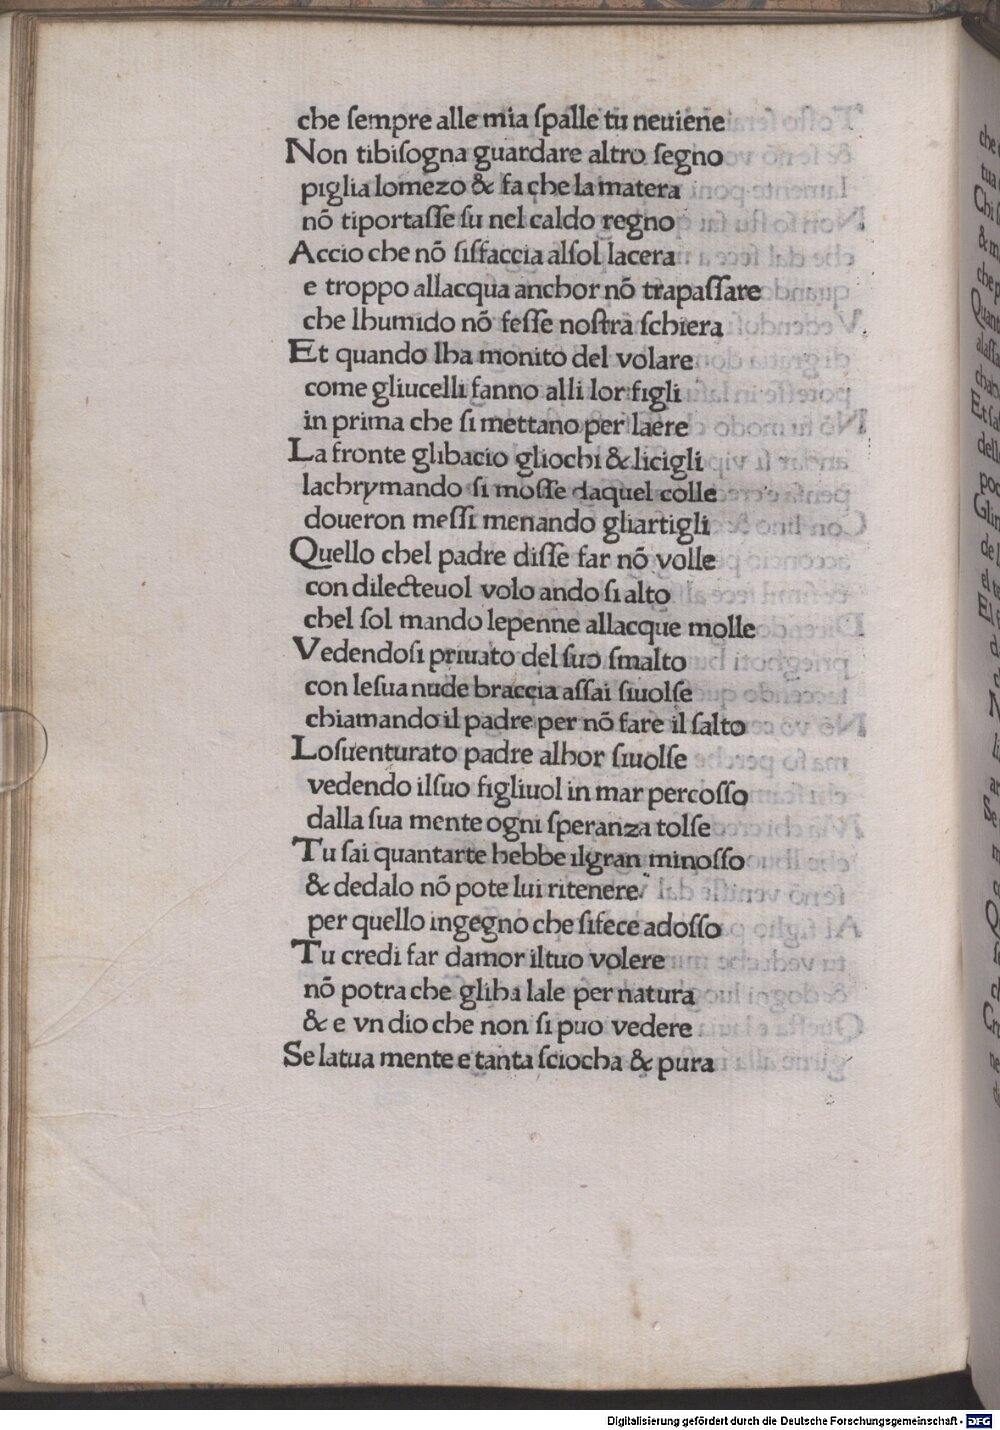 che ſempre alle mia ſpalle tu neuiene
Non tibiſogna guardare altro ſegno
piglia lomezo & fa che la matera
nõ tiportaſſe ſu nel caldo regno
Accio che nõ ſiſfaccia alſol lacera
e troppo allacqua anchor nõ trapaſſare
che lhumido nõ feſſe noſtra ſchiera
Et quando lha monito del volare
come gliucelli fanno alli lor figli
in prima che ſi mettano per laere
La fronte glibacio gliochi & licigli
lachrymando ſi moſſe daquel colle
doueron meſſi menando gliartigli
Quello chel padre diſſe far nõ volle
con dilecteuol volo ando ſi alto
chel ſol mando lepenne allacque molle
Vedendoſi priuato del ſuo ſmalto
con leſua nude braccia aſſai ſiuolſe
chiamando il padre per nõ fare il ſalto
Loſuenturato padre alhor ſiuolſe
vedendo ilſuo figliuol in mar percoſſo
dalla ſua mente ogni ſperanza tolſe
Tu ſai quantarte hebbe ilgran minoſſo
& dedalo nõ pote lui ritenere
per quello ingegno che ſifece adoſſo
Tu credi far damor iltuo volere
nõ potra che gliha lale per natura
& e vn dio che non ſi puo vedere
Se latua mente e tanta ſciocha & pura
Digitalisierung gefördert durch die Deutsche Forschungsgemeinschaft - DFG